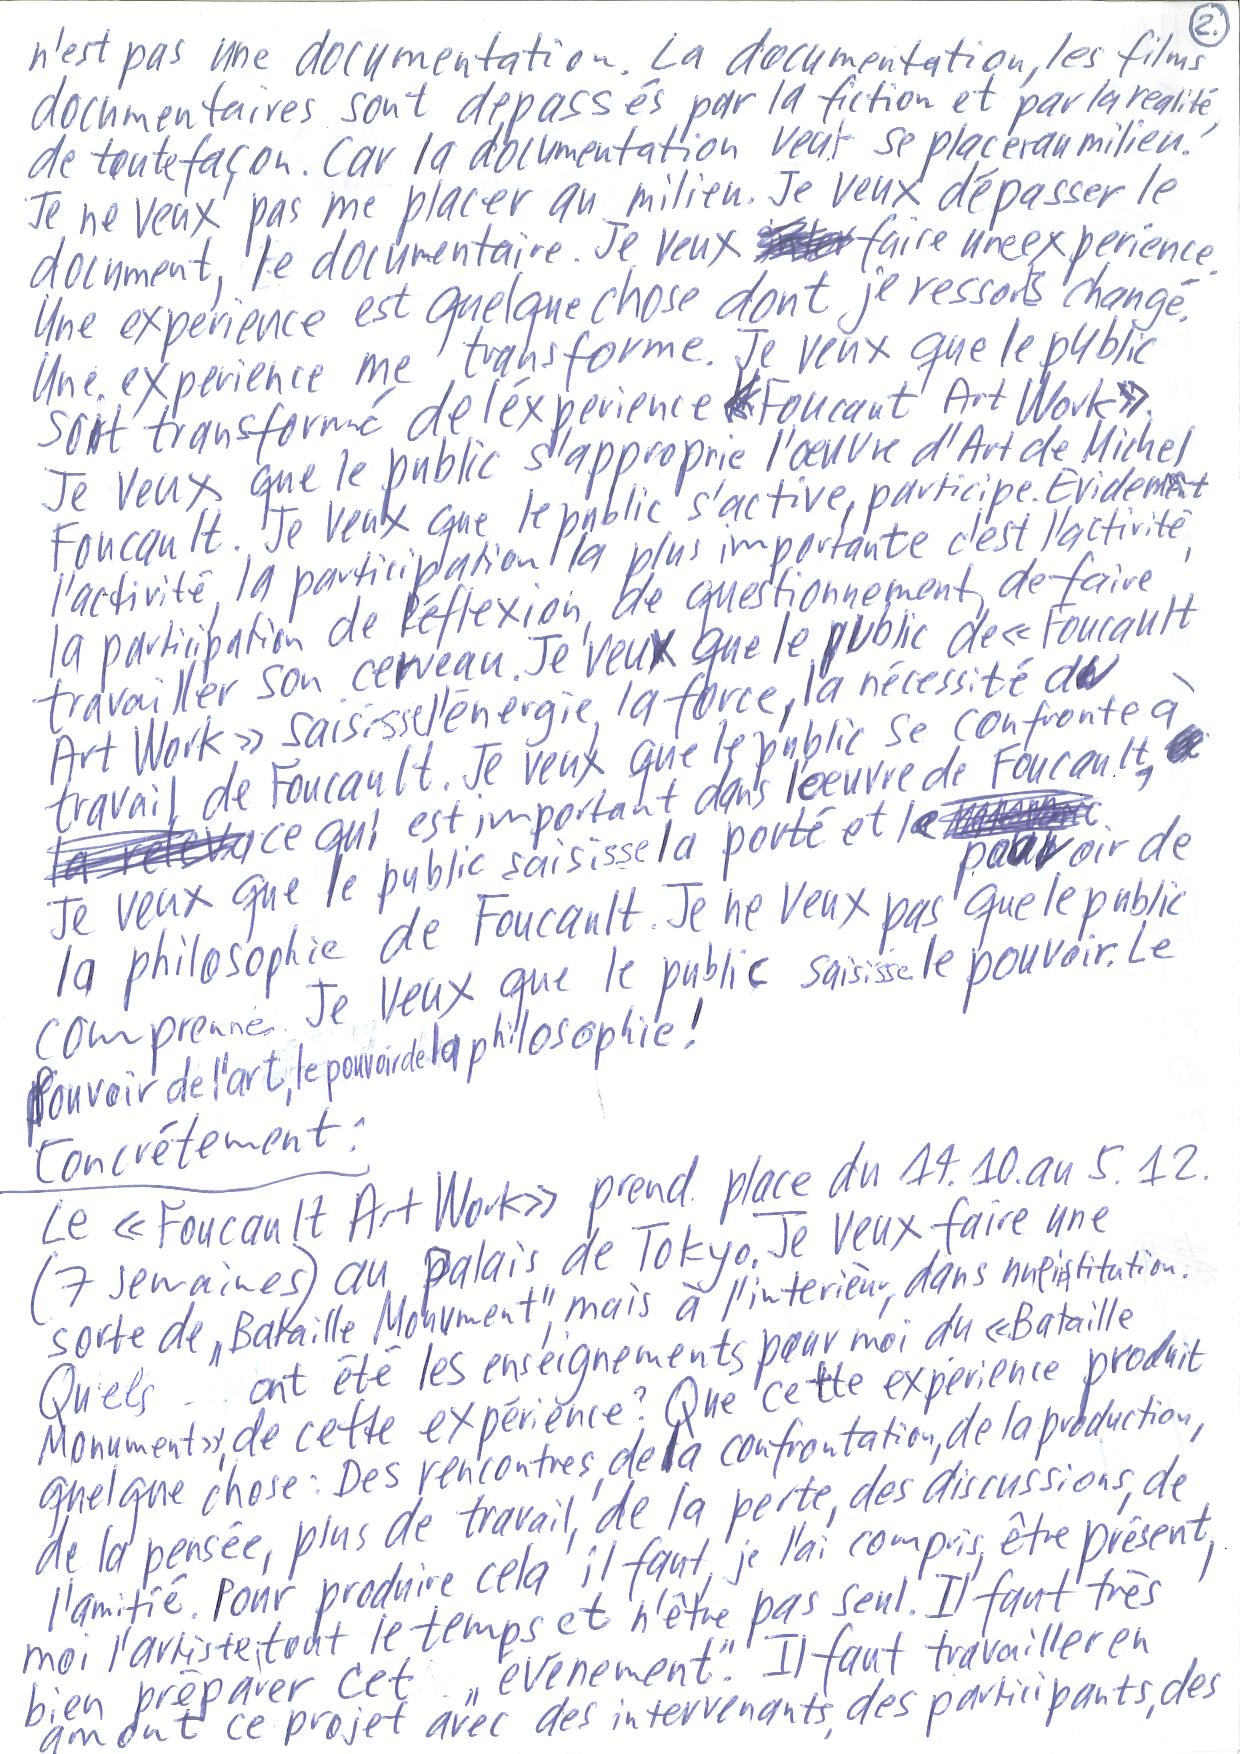 2.
n'est pas une documentation. La documentation, les films
documentaires sont depassés par la fiction et par la realité,
de toute façon. Car la documentation veut se placer au milieu.
Je ne veux pas me placer au milieu. Je veux dépasser le
document, le documentaire. Je veux faire une experience.
Une experience est quelque chose dont je ressors changé.
Une experience me transforme. Je veux que le public
soit transformé de l'éxperience «Foucaut Art Work».
Je veux que le public s'approprie l'œuvre d'Art de Michel
Foucault. Je veux que le public s'active, participe. Evidemment
l'activité, la participation la plus importante c'est l'activité,
la participation de réflexion, de questionnement, de faire
travailler son cerveau. Je veux que le public de «Foucault
Art Work» saisisse l'énergie, la force, la nécessité du
travail de Foucault. Je veux que le public se confronte à
ce qui est important dans l'oeuvre de Foucault,
Je veux que le public saisisse la porté et le
pouvoir de
la philosophie de Foucault. Je ne veux pas que le public
comprenne. Je veux que le public saisisse le pouvoir. Le
Pouvoir de l'art, le pouvoir de la philosophie!
Concrétement:
Le «Foucault Art Work» prend place du 14.10. au 5.12.
(7 semaines) au Palais de Tokyo. Je veux faire une
sorte de „Bataille Monument", mais à l'interiéur, dans une institution.
Quels ont été les enseignements pour moi du «Bataille
Monument», de cette expérience? Que cette expérience produit
quelque chose: Des rencontres, de la confrontation, de la production,
de la pensée, plus de travail, de la perte, des discussions, de
l'amitié. Pour produire cela il faut, je l'ai compris, être présent,
moi l'artiste, tout le temps et n'être pas seul. Il faut très
bien préparer cet „evenement". Il faut travailler en
amont ce projet avec des intervenants, des participants, des